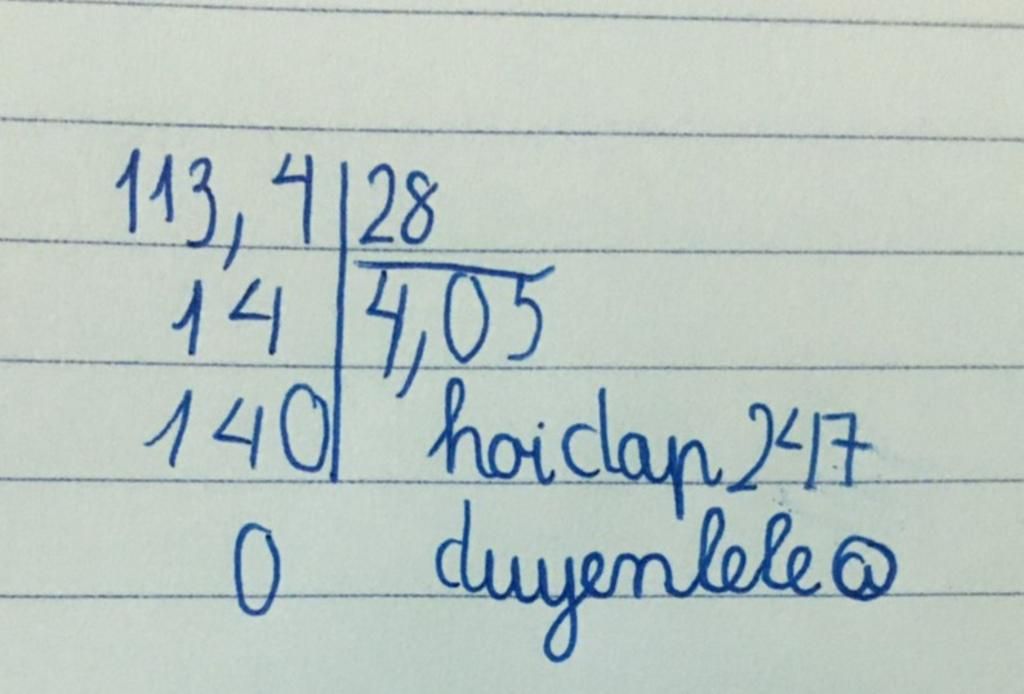 113,4 28
14 4,05
140 hoidap247
0 duyenlele@